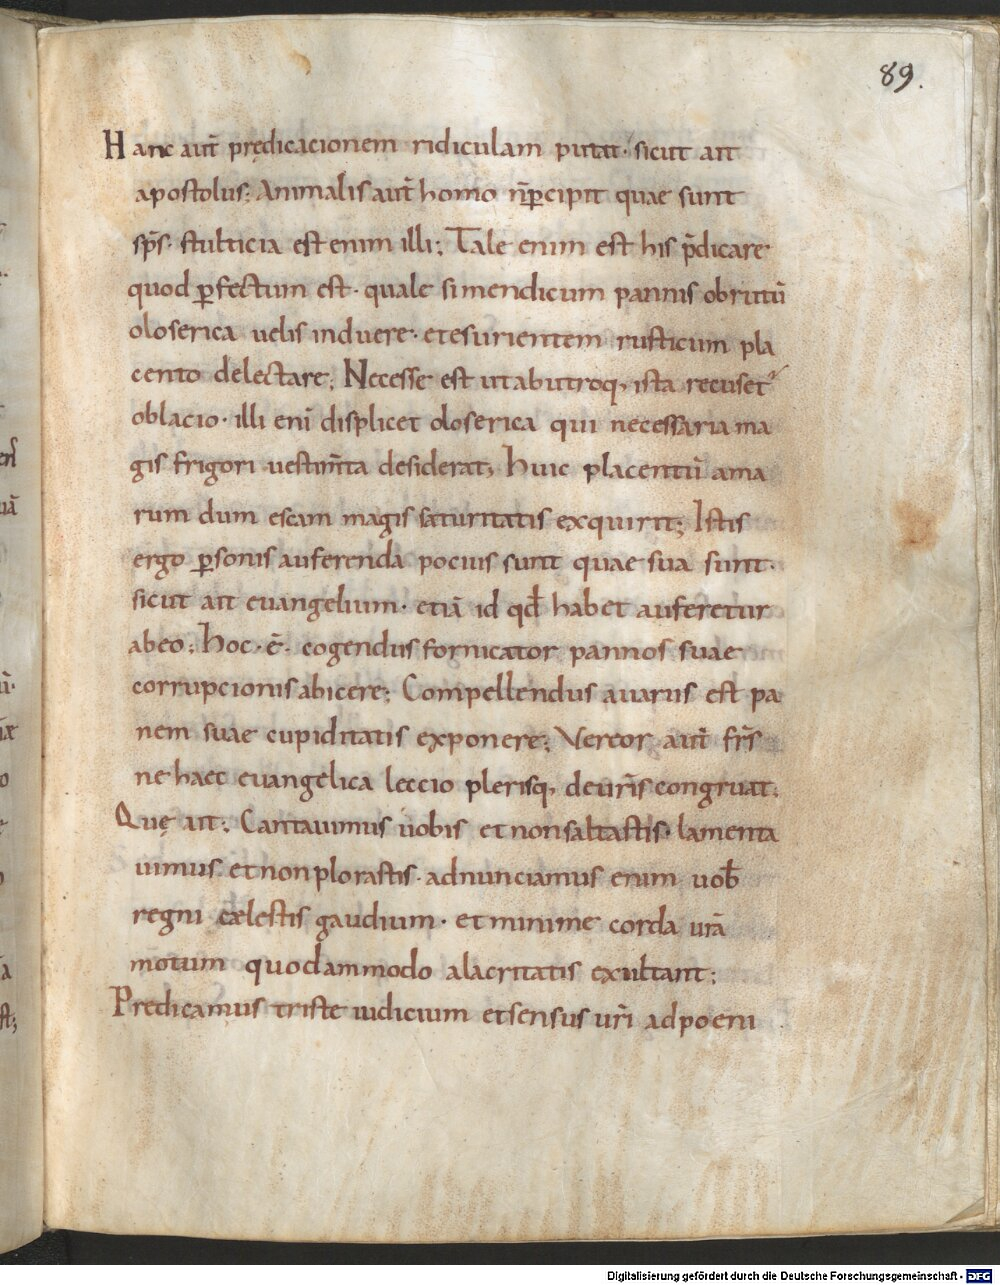 89.
Hanc aut̄ prędicacionem ridiculam putat· sicut ait
apostolus; Animalis aut̄ homo n̄ p̱cipit quae sunt
sp̄s· stulticia est enim illi; Tale enim est his p̄dicare
quod p̱fectum est· quale si mendicum pannis obritū
oloserica uelis induere· et esurientem rusticum pla
cento delectare; Necesse est ut ab utroq, ista recuset
oblacio· illi enī displicet oloserica qui necessaria ma
gis frigori uestim̄ta desiderat; huic placentū ama
rum dum escam magis saturitatis exquirit; Istis
ergo p̱sonis auferenda pocius sunt quae sua sunt·
sicut ait euangelium· etiā id qđ habet auferetur
abeo; hoc· ē· cogendus fornicator pannos suae
corrupcionis abicere; Compellendus auarus est pa
nem suae cupiditatis exponere; Vereor aut̄ fr̄s
ne haec euangelica leccio plerisq, de ur̄is congruat;
Quę ait; Cantauimus uobis et non saltastis· lamenta
uimus et non plorastis· adnunciamus enim uob̄
regni cælestis gaudium· et minime corda urā
motum quodammodo alacritatis exultant;
Predicamus triste iudicium et sensus ur̄i ad poeni
Digitalisierung gefördert durch die Deutsche Forschungsgemeinschaft - DFG